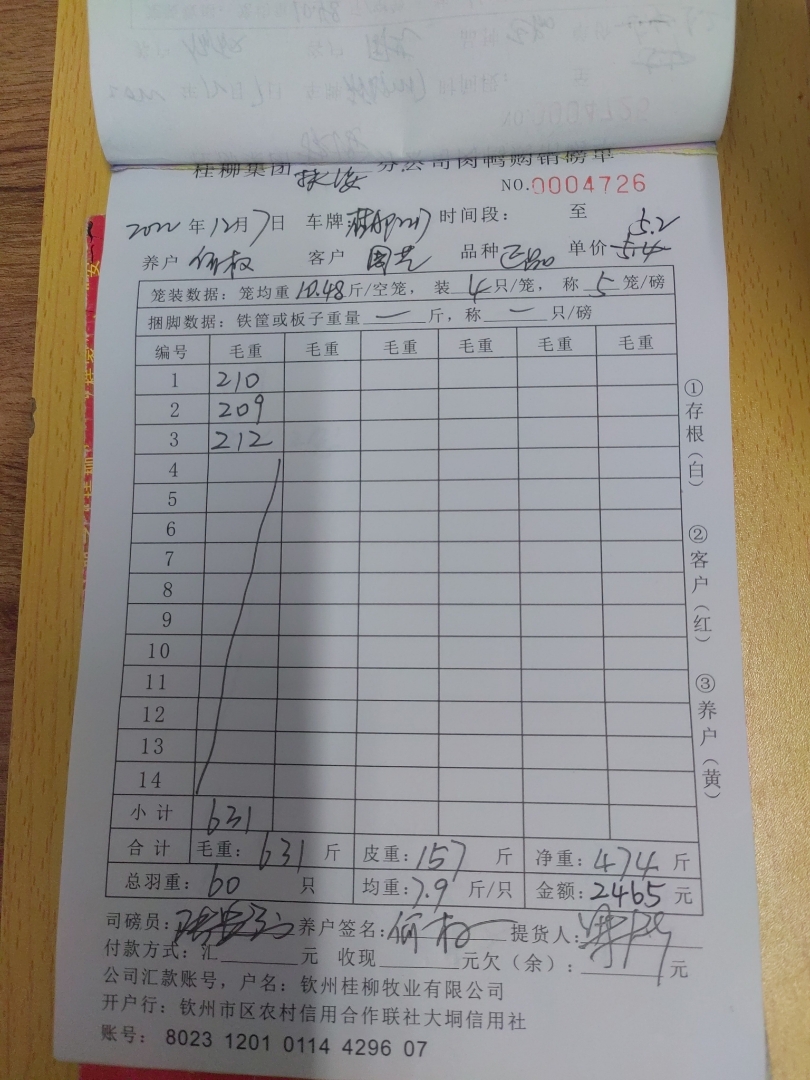 桂柳集团 分公司肉鸭购销磅单
NO.0004726
2022 年 12 月 7 日 车牌 时间段： 至
5.2
养户 何权 客户 周艺 品种 正品 单价 5.4
笼装数据：笼均重 10.48 斤/空笼，装 4 只/笼，称 5 笼/磅
捆脚数据：铁筐或板子重量 一 斤，称 一 只/磅
编号 毛重 毛重 毛重 毛重 毛重 毛重
1 210
2 209
3 212
4
5
6
7
8
9
10
11
12
13
14
小计 631
合计 毛重：631 斤 皮重：157 斤 净重：474 斤
总羽重：60 只 均重：7.9 斤/只 金额：2465 元
司磅员： 养户签名：何权 提货人：
付款方式：汇 元 收现 元欠（余）： 元
公司汇款账号，户名：钦州桂柳牧业有限公司
开户行：钦州市区农村信用合作联社大垌信用社
账号： 8023 1201 0114 4296 07
①存根（白） ②客户（红） ③养户（黄）